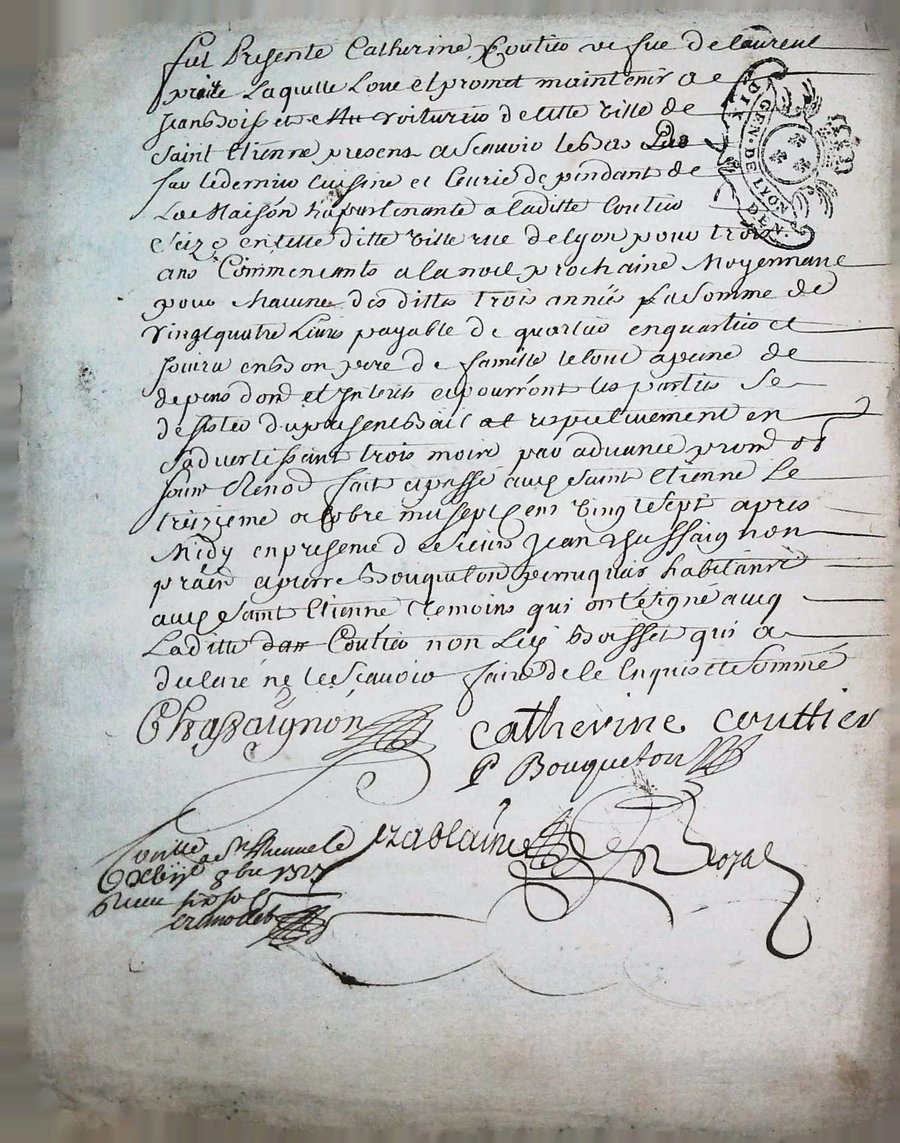 fut Presente Catherine Couttier veufue de laurent
laquelle Loue et promet maintenir a
et voiturier de cette ville de
Saint Etienne present ascavoir le bas
cuisine et Ecurie dependant de
La Maison appartenante a laditte Couttier
Size en cette ditte ville rue de lyon pour trois
ans Commencants a la noel prochaine Moyennant
pour chacune des dittes trois années La Somme de
vingt quatre Livres payable de quartier en quartier et
jouira en bon pere de famille le tout a peine de
depens dom et Interets et pourront les parties Se
desister du present bail respectivement en
Sadvertissant trois mois par advance prom
Soum Renon fait et passé audit Saint Etienne Le
treizieme octobre mil sept Cens vingt Sept apres
Midy en presence de Sieurs Jean Chassaignon
pratn et pierre Bouqueton perruquier habitants
audit Saint Etienne temoins qui ont Signé avec
Laditte Couttier non Led Boisset qui a
declaré ne le Scavoir faire de ce Enquis et Sommé
Chassaignon catherine couttier
P Bouqueton
Rozal
Controllé a St Etienne le
8bre 1727
Receu six sols
GEN. DE LYON
DIX DEN.